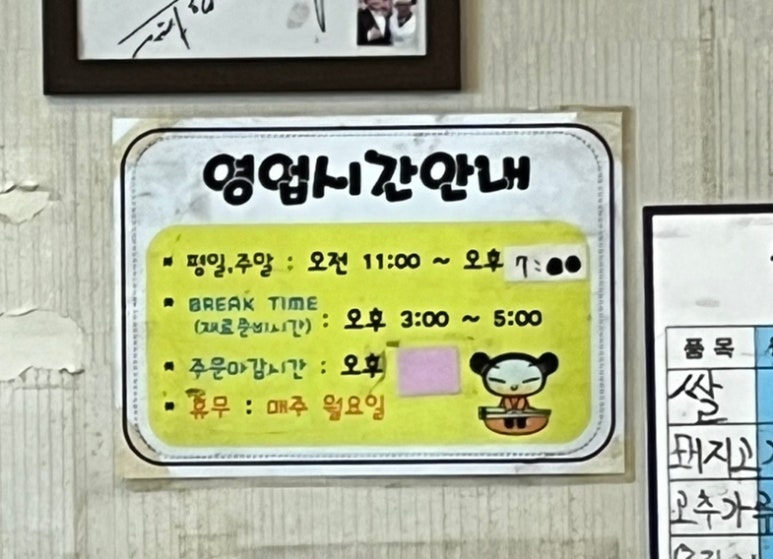 영업시간안내
평일,주말 : 오전 11:00 ~ 오후 7:00
BREAK TIME
(재료준비시간) : 오후 3:00 ~ 5:00
주문마감시간 : 오후
휴무 : 매주 월요일
품목
쌀
돼지고
고추가루